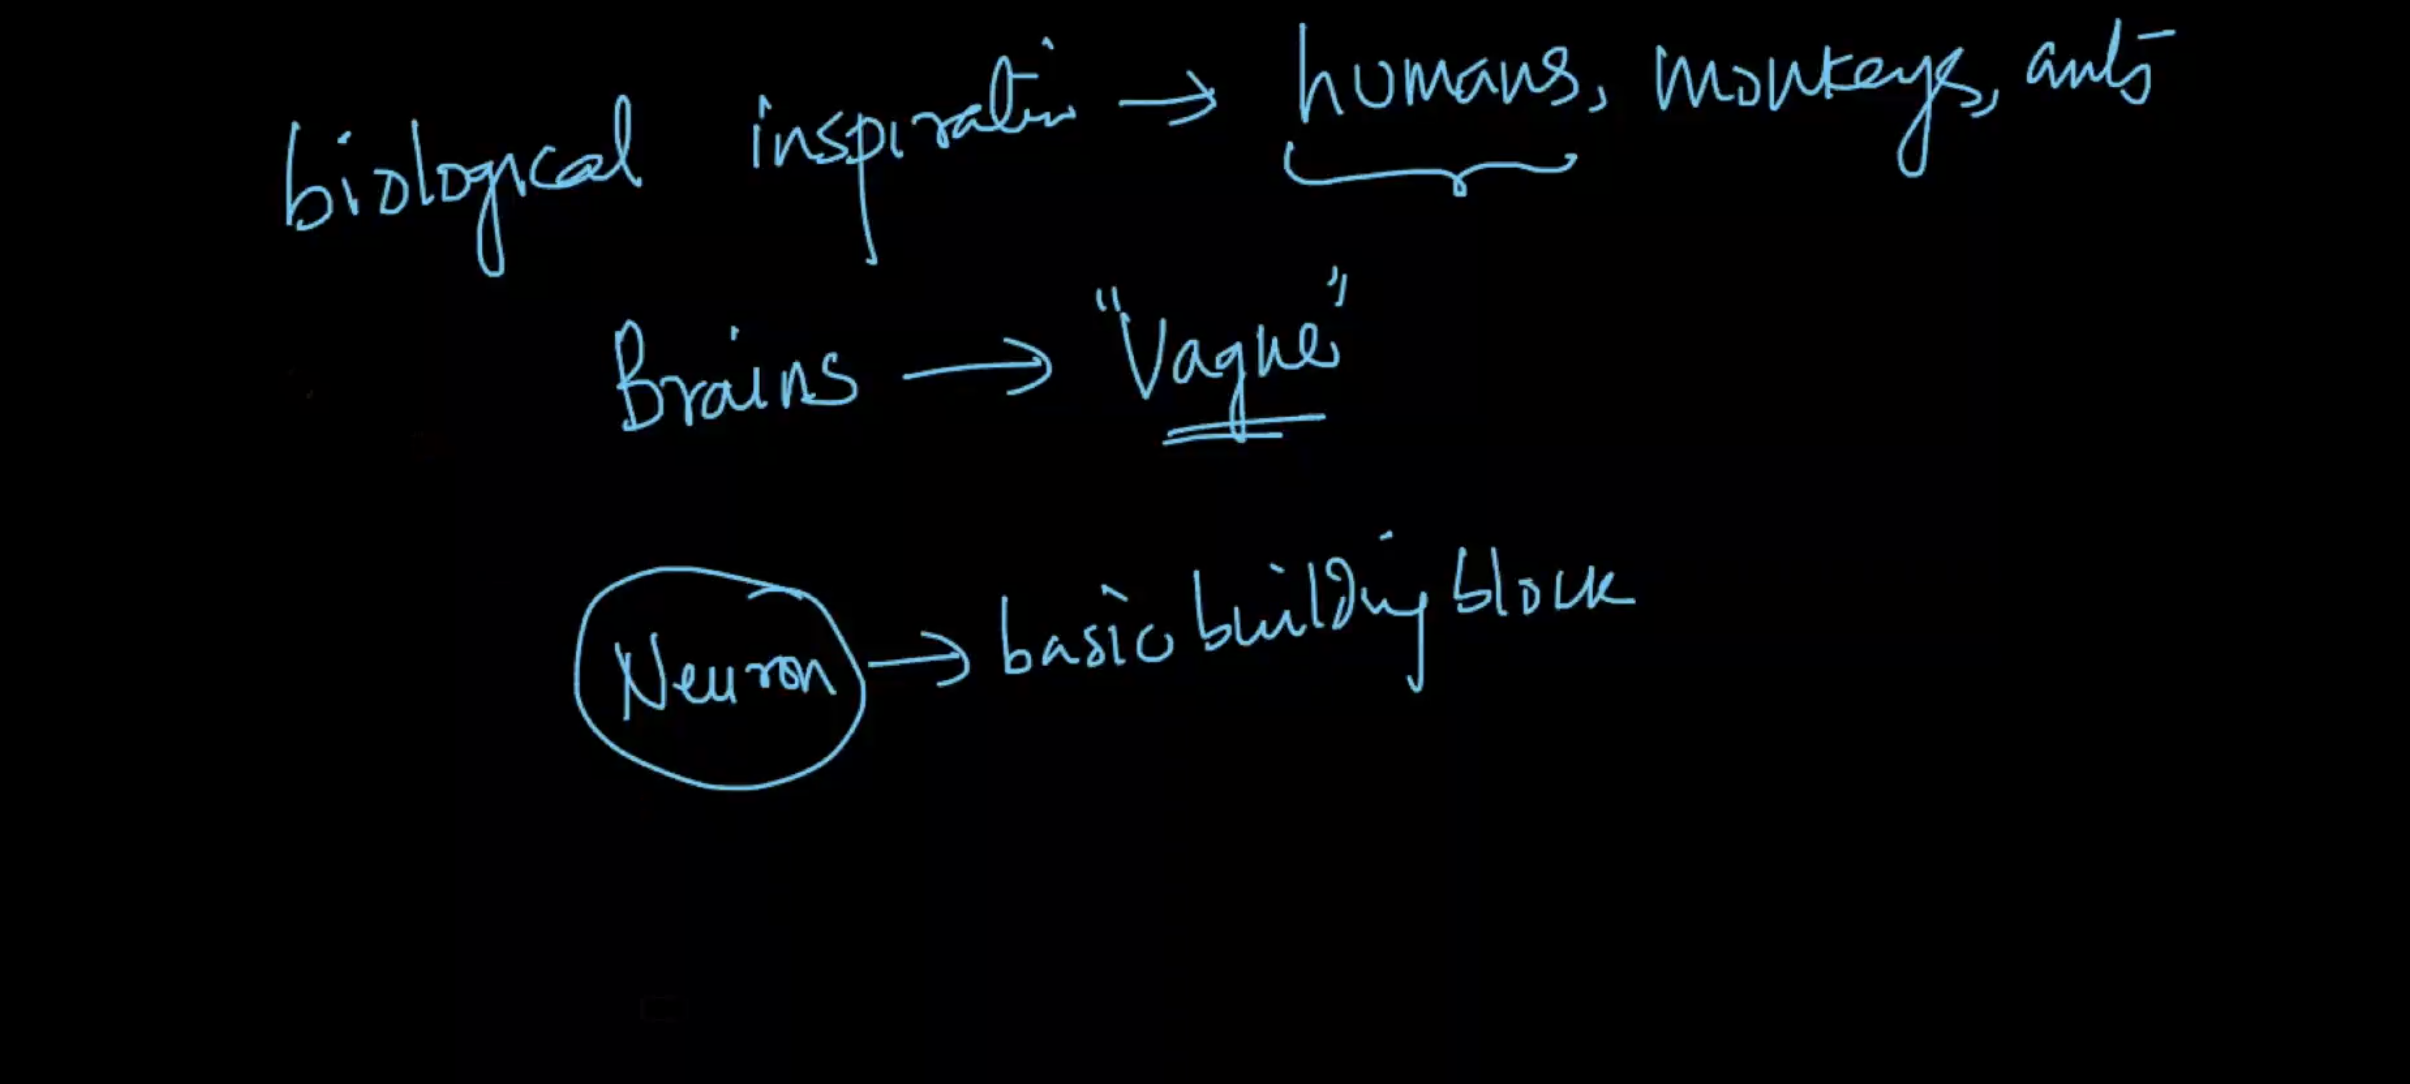 biological inspiration → humans, monkeys, ants
Brains → "Vague"
Neuron → basic building block